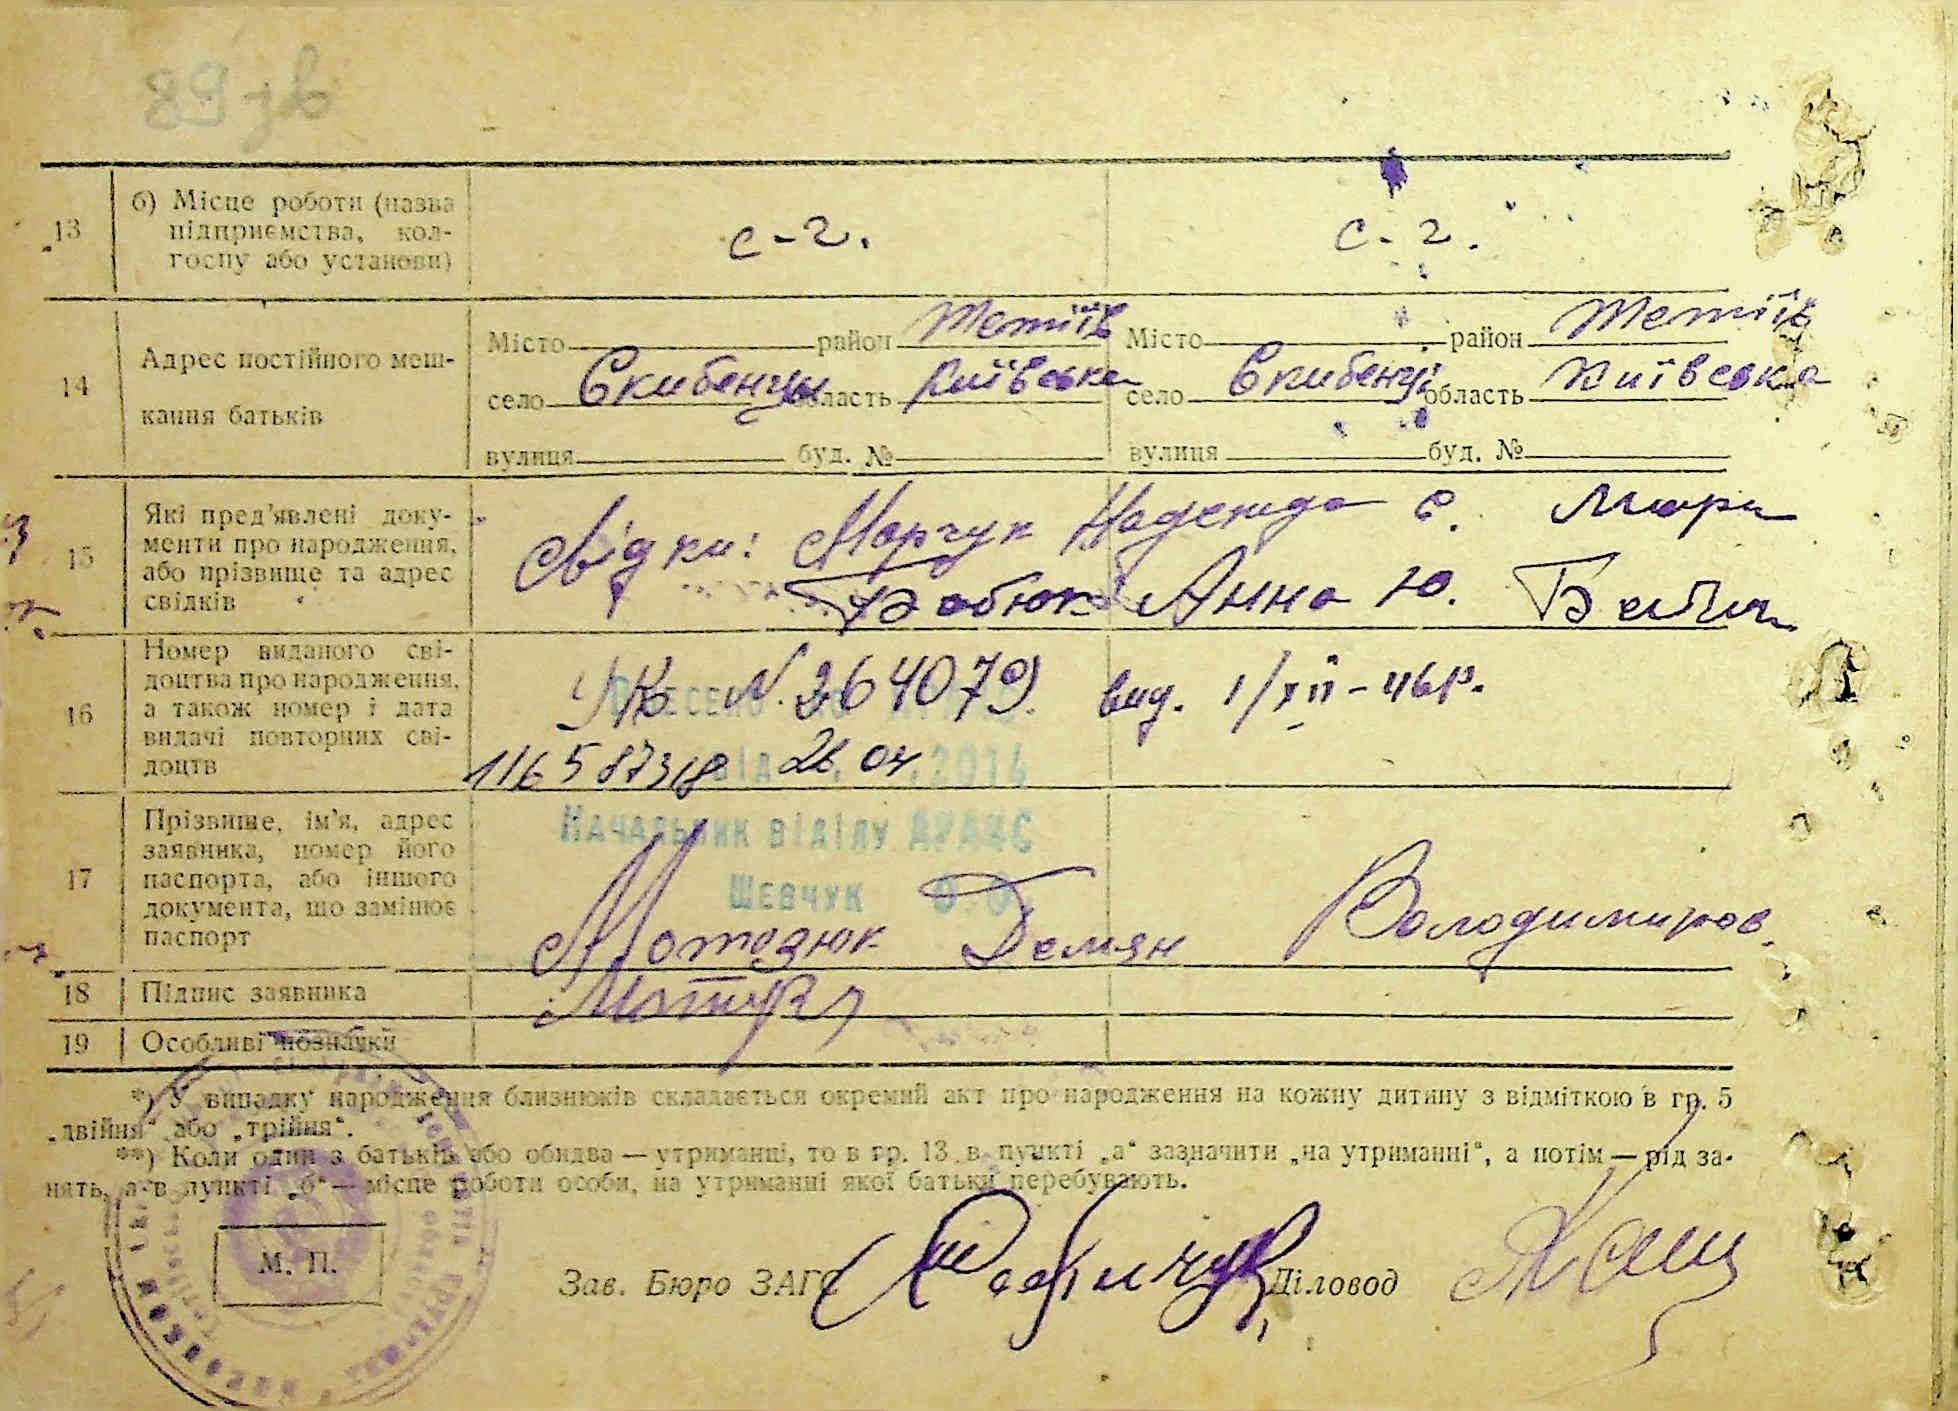 13 б) Місце роботи (назва
підприємства, кол-
госпу або установи)
с-г. с-г.
14 Адрес постійного меш-
кання батьків
Місто район Тетіїв Місто район Тетіїв
село Скибенцы область Київська село Скибенці область Київська
вулиця буд. № вулиця буд. №
15 Які пред'явлені доку-
менти про народження,
або прізвище та адрес
свідків
Свідки: Марчук Надежда С. Марч
Бабюк Анна Ю. Бабич
16 Номер виданого сві-
доцтва про народження,
а також номер і дата
видачі повторних сві-
доцтв
УК N. 264079. вид. 1/XII-46р.
116587318 26 04 2014
Начальник відділу ДРАЦС
Шевчук О.О.
17 Прізвище, ім'я, адрес
заявника, номер його
паспорта, або іншого
документа, що замінює
паспорт
Демян Володимиров.
18 Підпис заявника
19 Особливі позначки
*) У випадку народження близнюків складається окремий акт про народження на кожну дитину з відміткою в гр. 5
„двійня“ або „трійня“.
**) Коли один з батьків або обидва — утриманці, то в гр. 13 в пункті „а“ зазначити „на утриманні“, а потім — рід за-
нять, а в пункті „б“ — місце роботи особи, на утриманні якої батьки перебувають.
М. П.
Зав. Бюро ЗАГС Діловод